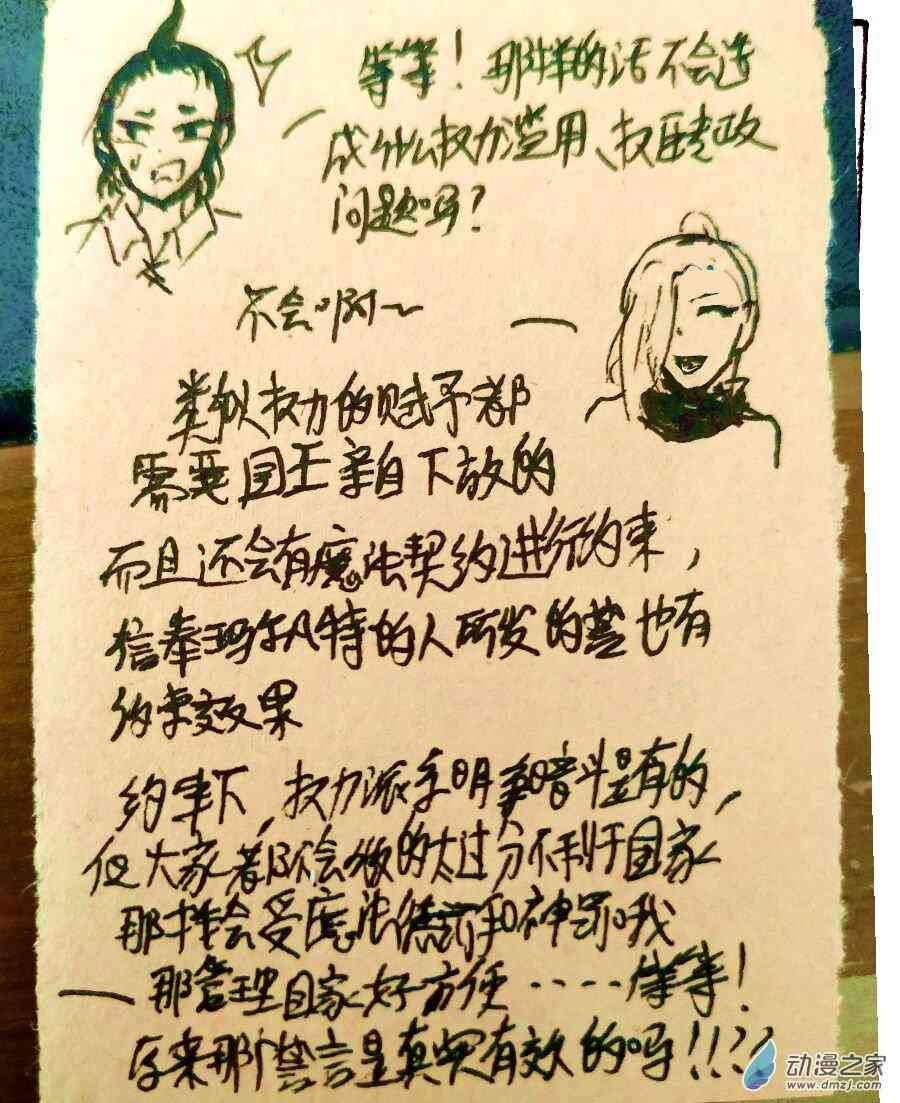 等等！那样的话不会造
成什么权力滥用、权臣专政
问题吗？
不会啊～
类似权力的赋予都
需要国王亲自下放的
而且还会有魔法契约进行约束，
信奉玛尔凡特的人所发的誓也有
约束效果
约束下，权力派系明争暗斗是有的，
但大家都不会做的太过分不利于国家
那样会受魔法惩罚和神罚哦
那管理国家好方便……等等！
原来那个誓言是真实有效的吗！！？？
动漫之家
www.dmzj.com